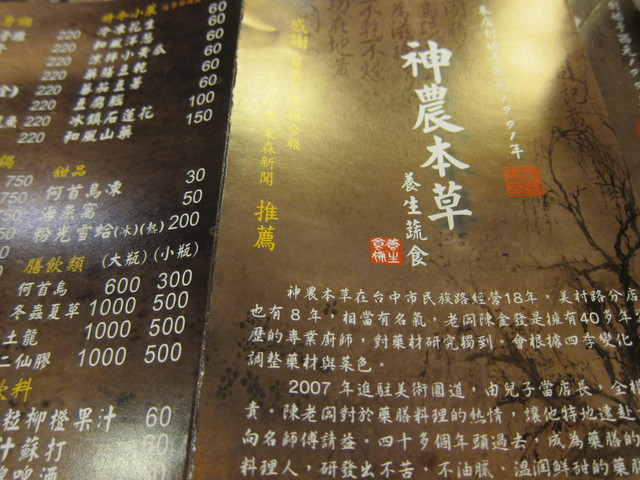 時令小菜
60
220 冷凍花生 60
220 和風洋蔥 60
220 涼拌小黃瓜 60
220 藥膳豆乾 60
220 養品豆薯 60
220 豆腐 100
220 冰鎮石蓮花 150
220 和風山藥
鍋 甜品
750 何首烏凍 30
750 海燕窩 50
750 粉光雪蛤(冰)(熱) 200
膳飲類 (大瓶) (小瓶)
何首烏 600 300
冬蟲夏草 1000 500
土龍 1000 500
二仙膠 1000 500
飲料
粒柳橙果汁 60
汁蘇打 60
啤酒 60
感謝
合報
東森新聞
推薦
1991年
神農本草
養生蔬食
神農本草在台中市民族路經營18年，美村路分店
也有8年，相當有名氣，老闆陳金發是擁有40多年
歷的專業廚師，對藥材研究獨到。會根據四季變化
調整藥材與菜色。
2007年進駐美術園道，由兒子當店長，全
責。陳老闆對於藥膳料理的熱情，讓他特地遠赴
向名師傅請益。四十多個年頭過去，成為藥膳的
料理人，研發出不苦、不油膩、溫潤鮮甜的藥膳